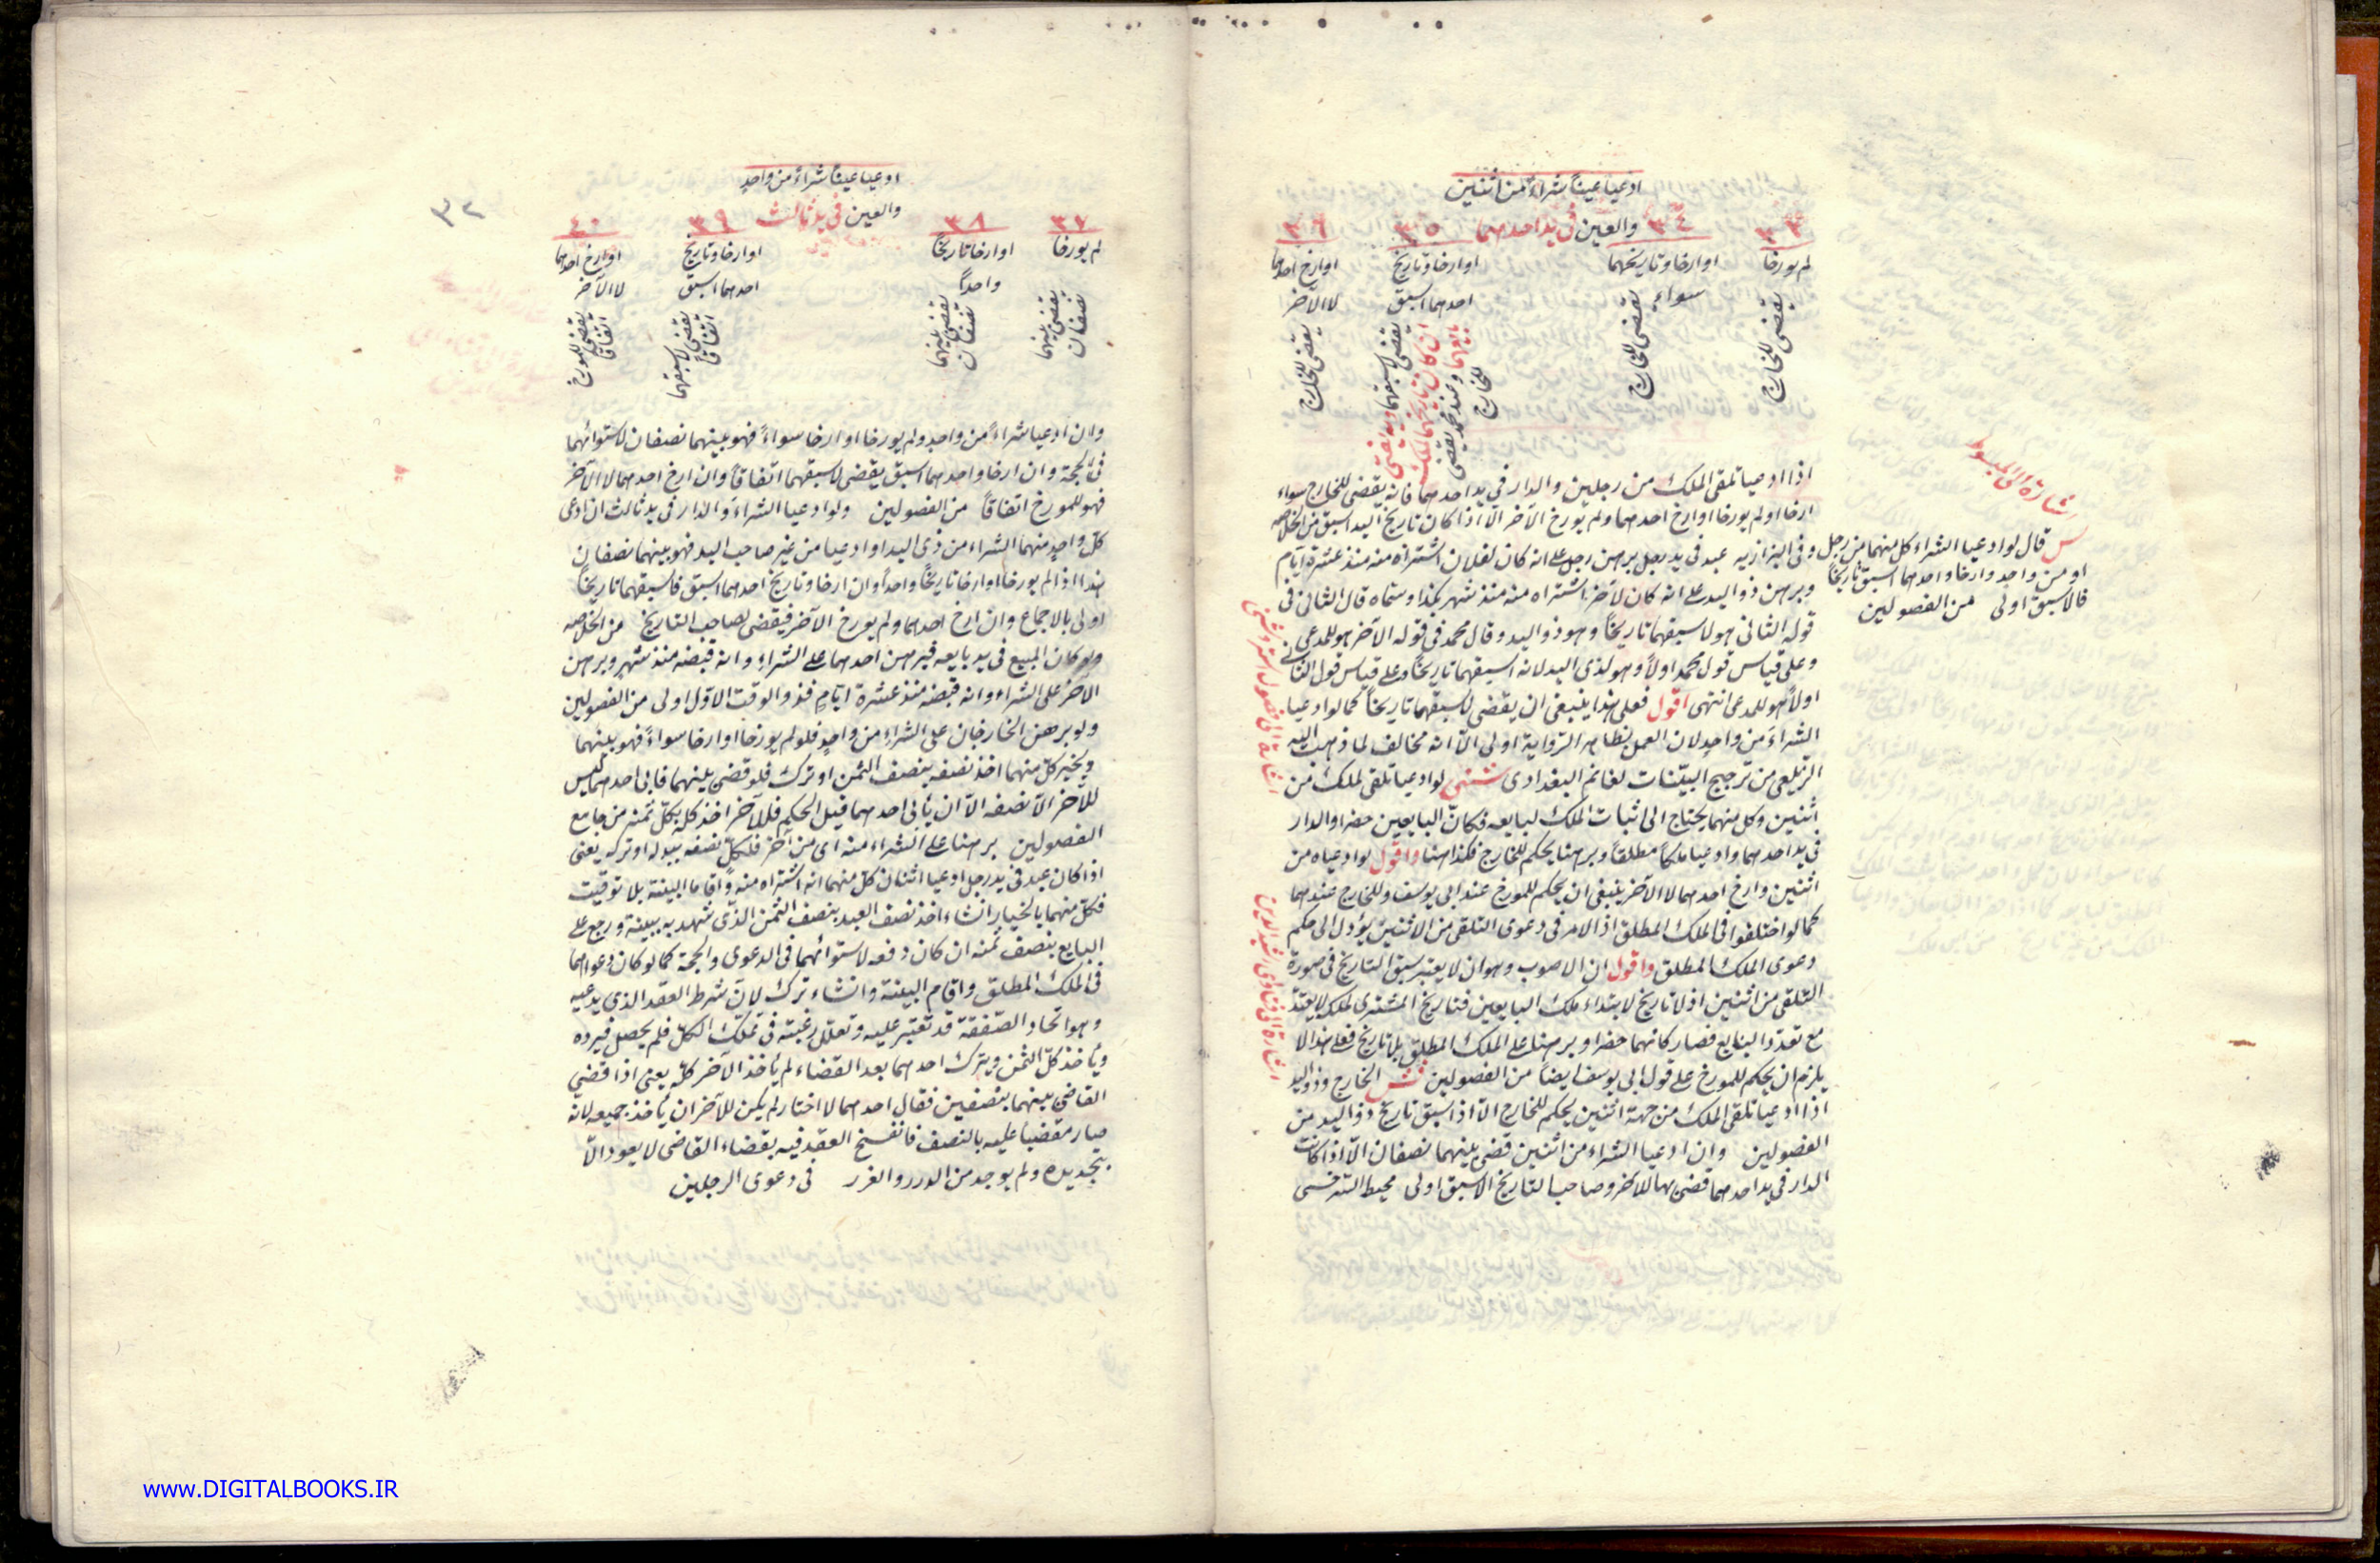 ادعيا عيناً شراءً من اثنين
والعين في يد احدهما
٣٣
لم يورخا
يقضى للخارج
٣٤
او ارخا وتاريخهما
سواء
يقضى للخارج
٣٥
او ارخا وتاريخ
احدهما اسبق
يقضى لاسبقهما
ان كان تاريخهما لملك
بايعهما وعند محمد يقضى
للخارج
٣٦
او ارخ احدهما
لا الآخر
يقضى للخارج
اذا ادعيا تلقى الملك من رجلين والدار في يد احدهما فانه يقضى للخارج سواء
ارخا او لم يورخا او ارخ احدهما ولم يورخ الآخر الا اذا كان تاريخ اليد اسبق من الخلاصه
وفي البزازيه عبد في يد رجل برهن رجل على انه كان لفلان اشتراه منه منذ عشرة ايام
وبرهن ذو اليد على انه كان لآخر اشتراه منه منذ شهر بكذا وسماه قال الثاني في
قوله الثاني هو لاسبقهما تاريخاً وهو ذو اليد وقال محمد في قوله الآخر هو للمدعي
وعلى قياس قول محمد اولاً وهو لذى اليد لانه اسبقهما تاريخاً وعلى قياس قول الثاني
اولاً هو للمدعى انتهى اقول فعلى هذا ينبغى ان يقضى لاسبقهما تاريخاً كما لو ادعيا
الشراء من واحد لان العمل بظاهر الرواية اولى الا انه مخالف لما ذهب اليه
الزيلعى من ترجيح البينات لغانم البغدادى لو ادعيا تلقى لملك من
اثنين وكل منهما يحتاج الى اثبات الملك لبايعه فكان البايعين حضرا والدار
في يد احدهما وادعيا ملكاً مطلقاً وبرهنا يحكم للخارج فكذا هنا واقول لو ادعياه من
اثنين وارخ احدهما لا الآخر ينبغى ان يحكم للمورخ عند ابى يوسف وللخارج عندهما
كما لو اختلفوا في الملك المطلق اذ الامر في دعوى التلقى من الاثنين يؤول الى حكم
دعوى الملك المطلق واقول ان الاصوب وهو ان لا يعتبر سبق التاريخ في صورة
التلقى من اثنين اذ لا تاريخ لابتداء ملك البايعين فتاريخ المشترى لملكه لا يعتد
مع تعدد البايع فصار كانهما حضرا وبرهنا على الملك المطلق بلا تاريخ فعلى هذا لا
يلزم ان يحكم للمورخ على قول ابى يوسف ايضاً من الفصولين الخارج وذو اليد
اذا ادعيا تلقى الملك من جهة اثنين يحكم للخارج الا اذا سبق تاريخ ذو اليد من
الفصولين وان ادعيا الشراء من اثنين قضى بينهما نصفان الا اذا كانت
الدار في يد احدهما قضى بها للآخر وصاحب التاريخ الاسبق اولى محيط السرخسى
اشارة الى المبسوط
س قال لو ادعيا الشراء كل منهما من رجل
او من واحد وارخا واحدهما اسبق تاريخاً
فالاسبق اولى من الفصولين
اشارة الى فصول استروشنى
اشارة الى فتاوى رشيد الدين
٣٢
ادعيا عيناً شراءً من واحدٍ
والعين في يد ثالث
٣٧
لم يورخا
يقضى بينهما
نصفان
٣٨
او ارخا تاريخاً
واحداً
يقضى بينهما
نصفان
٣٩
او ارخا وتاريخ
احدهما اسبق
يقضى لاسبقهما
اتفاقاً
٤٠
او ارخ احدهما
لا الآخر
يقضى للمورخ
اتفاقاً
وان ادعيا شراءً من واحدٍ ولم يورخا او ارخا سواءً فهو بينهما نصفان لاستوائهما
في الحجة وان ارخا واحدهما اسبق يقضى لاسبقهما اتفاقاً وان ارخ احدهما لا الآخر
فهو للمورخ اتفاقاً من الفصولين ولو ادعيا الشراء والدار في يد ثالث ان ادعى
كل واحدٍ منهما الشراء من ذى اليد او ادعيا من غير صاحب اليد فهو بينهما نصفان
هذا اذا لم يورخا او ارخا تاريخاً واحداً وان ارخا وتاريخ احدهما اسبق فاسبقهما تاريخاً
اولى بالاجماع وان ارخ احدهما ولم يورخ الآخر فيقضى لصاحب التاريخ من الخلاصه
ولو كان المبيع في يد بايعه فبرهن احدهما على الشراء وانه قبضه منذ شهرٍ وبرهن
الآخر على الشراء وانه قبضه منذ عشرة ايامٍ فذو الوقت الاول اولى من الفصولين
ولو برهن الخارجان على الشراء من واحدٍ فلو لم يورخا او ارخا سواءً فهو بينهما
ويخير كل منهما اخذ نصفه بنصف الثمن او ترك فلو قضى بينهما فابى احدهما ليس
للآخر الا نصفه الا ان يأبى احدهما قبل الحكم فللآخر اخذ كله بكل ثمنه من جامع
الفصولين برهنا على الشراء منه اى من آخر فلكل نصفه ببدله او تركه يعنى
اذا كان عبد في يد رجل ادعيا اثنان كل منهما انه اشتراه منه واقاما البينة بلا توقيت
فكل منهما بالخيار ان شاء اخذ نصف العبد بنصف الثمن الذى شهد به بينته ورجع على
البايع بنصف ثمنه ان كان دفعه لاستوائهما في الدعوى والحجة كما لو كان دعواهما
في الملك المطلق واقام البينة وان شاء ترك لان شرط العقد الذى يدعيه
وهو اتحاد الصفقة قد تغير عليه وتعلل رغبته في تملك الكل فلم يحصل فيرده
ويأخذ كل الثمن وبترك احدهما بعد القضاء لم يأخذ الآخر كله يعنى اذا قضى
القاضى بينهما بنصفين فقال احدهما لا اختار لم يكن للآخر ان يأخذ جميعه لانه
صار مقضيا عليه بالنصف فانفسخ العقد فيه بقضاء القاضى لا يعود الا
بتجديده ولم يوجد من الدرر والغرر في دعوى الرجلين
www.DIGITALBOOKS.IR